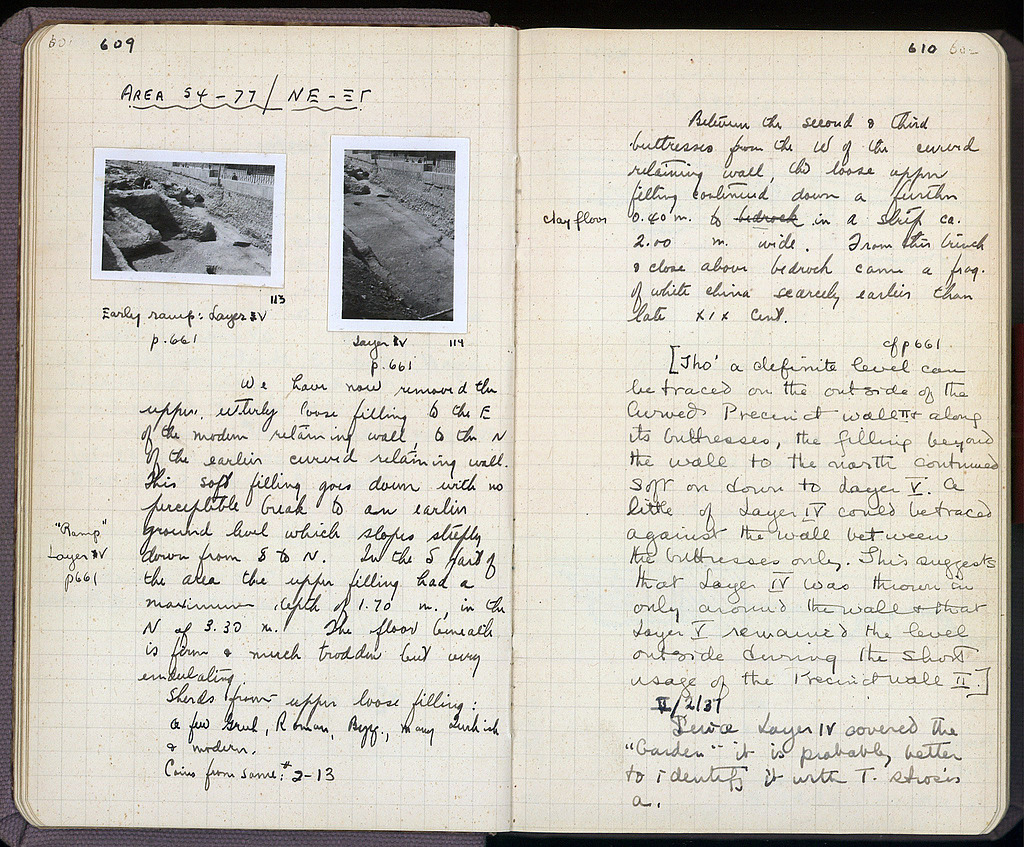 609
AREA 54-77/NE-ET
113
Early ramp: Layer V
p. 661
Layer V 114
p. 661
We have now removed the
upper, utterly loose filling to the E
of the modern retaining wall, to the N
of the earlier curved retaining wall.
This soft filling goes down with no
perceptible break to an earlier
ground level which slopes steeply
down from S to N. In the S part of
the area the upper filling had a
maximum depth of 1.70 m., in the
N of 3.30 m. The floor beneath
is firm & much trodden but very
undulating.
"Ramp"
Layer V
p661
Sherds from upper loose filling:
a few Greek, Roman, Byz., many Turkish
& modern.
Coins from same: #2-13
610
Between the second & third
buttresses from the W of the curved
retaining wall, the loose upper
filling continued down a further
0.40 m. to bedrock in a strip ca.
clay floor
2.00 m. wide. From this trench
& close above bedrock came a frag.
of white china scarcely earlier than
late XIX Cent.
cf p 661.
[Tho' a definite level can
be traced on the outside of the
Curved Precinct wall II & along
its buttresses, the filling beyond
the wall to the north continued
soft on down to Layer V. A
little of Layer IV could be traced
against the wall between
the buttresses only. This suggests
that Layer IV was thrown in
only around the wall & that
Layer V remained the level
outside during the short
usage of the Precinct wall II.]
II/2/37
Since Layer IV covered the
"Garden" it is probably better
to identify it with T. strosis
a.